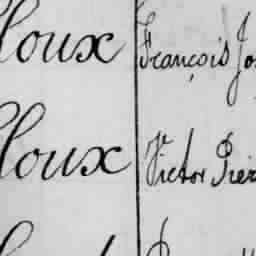 loux François Jos
loux Victor Pier